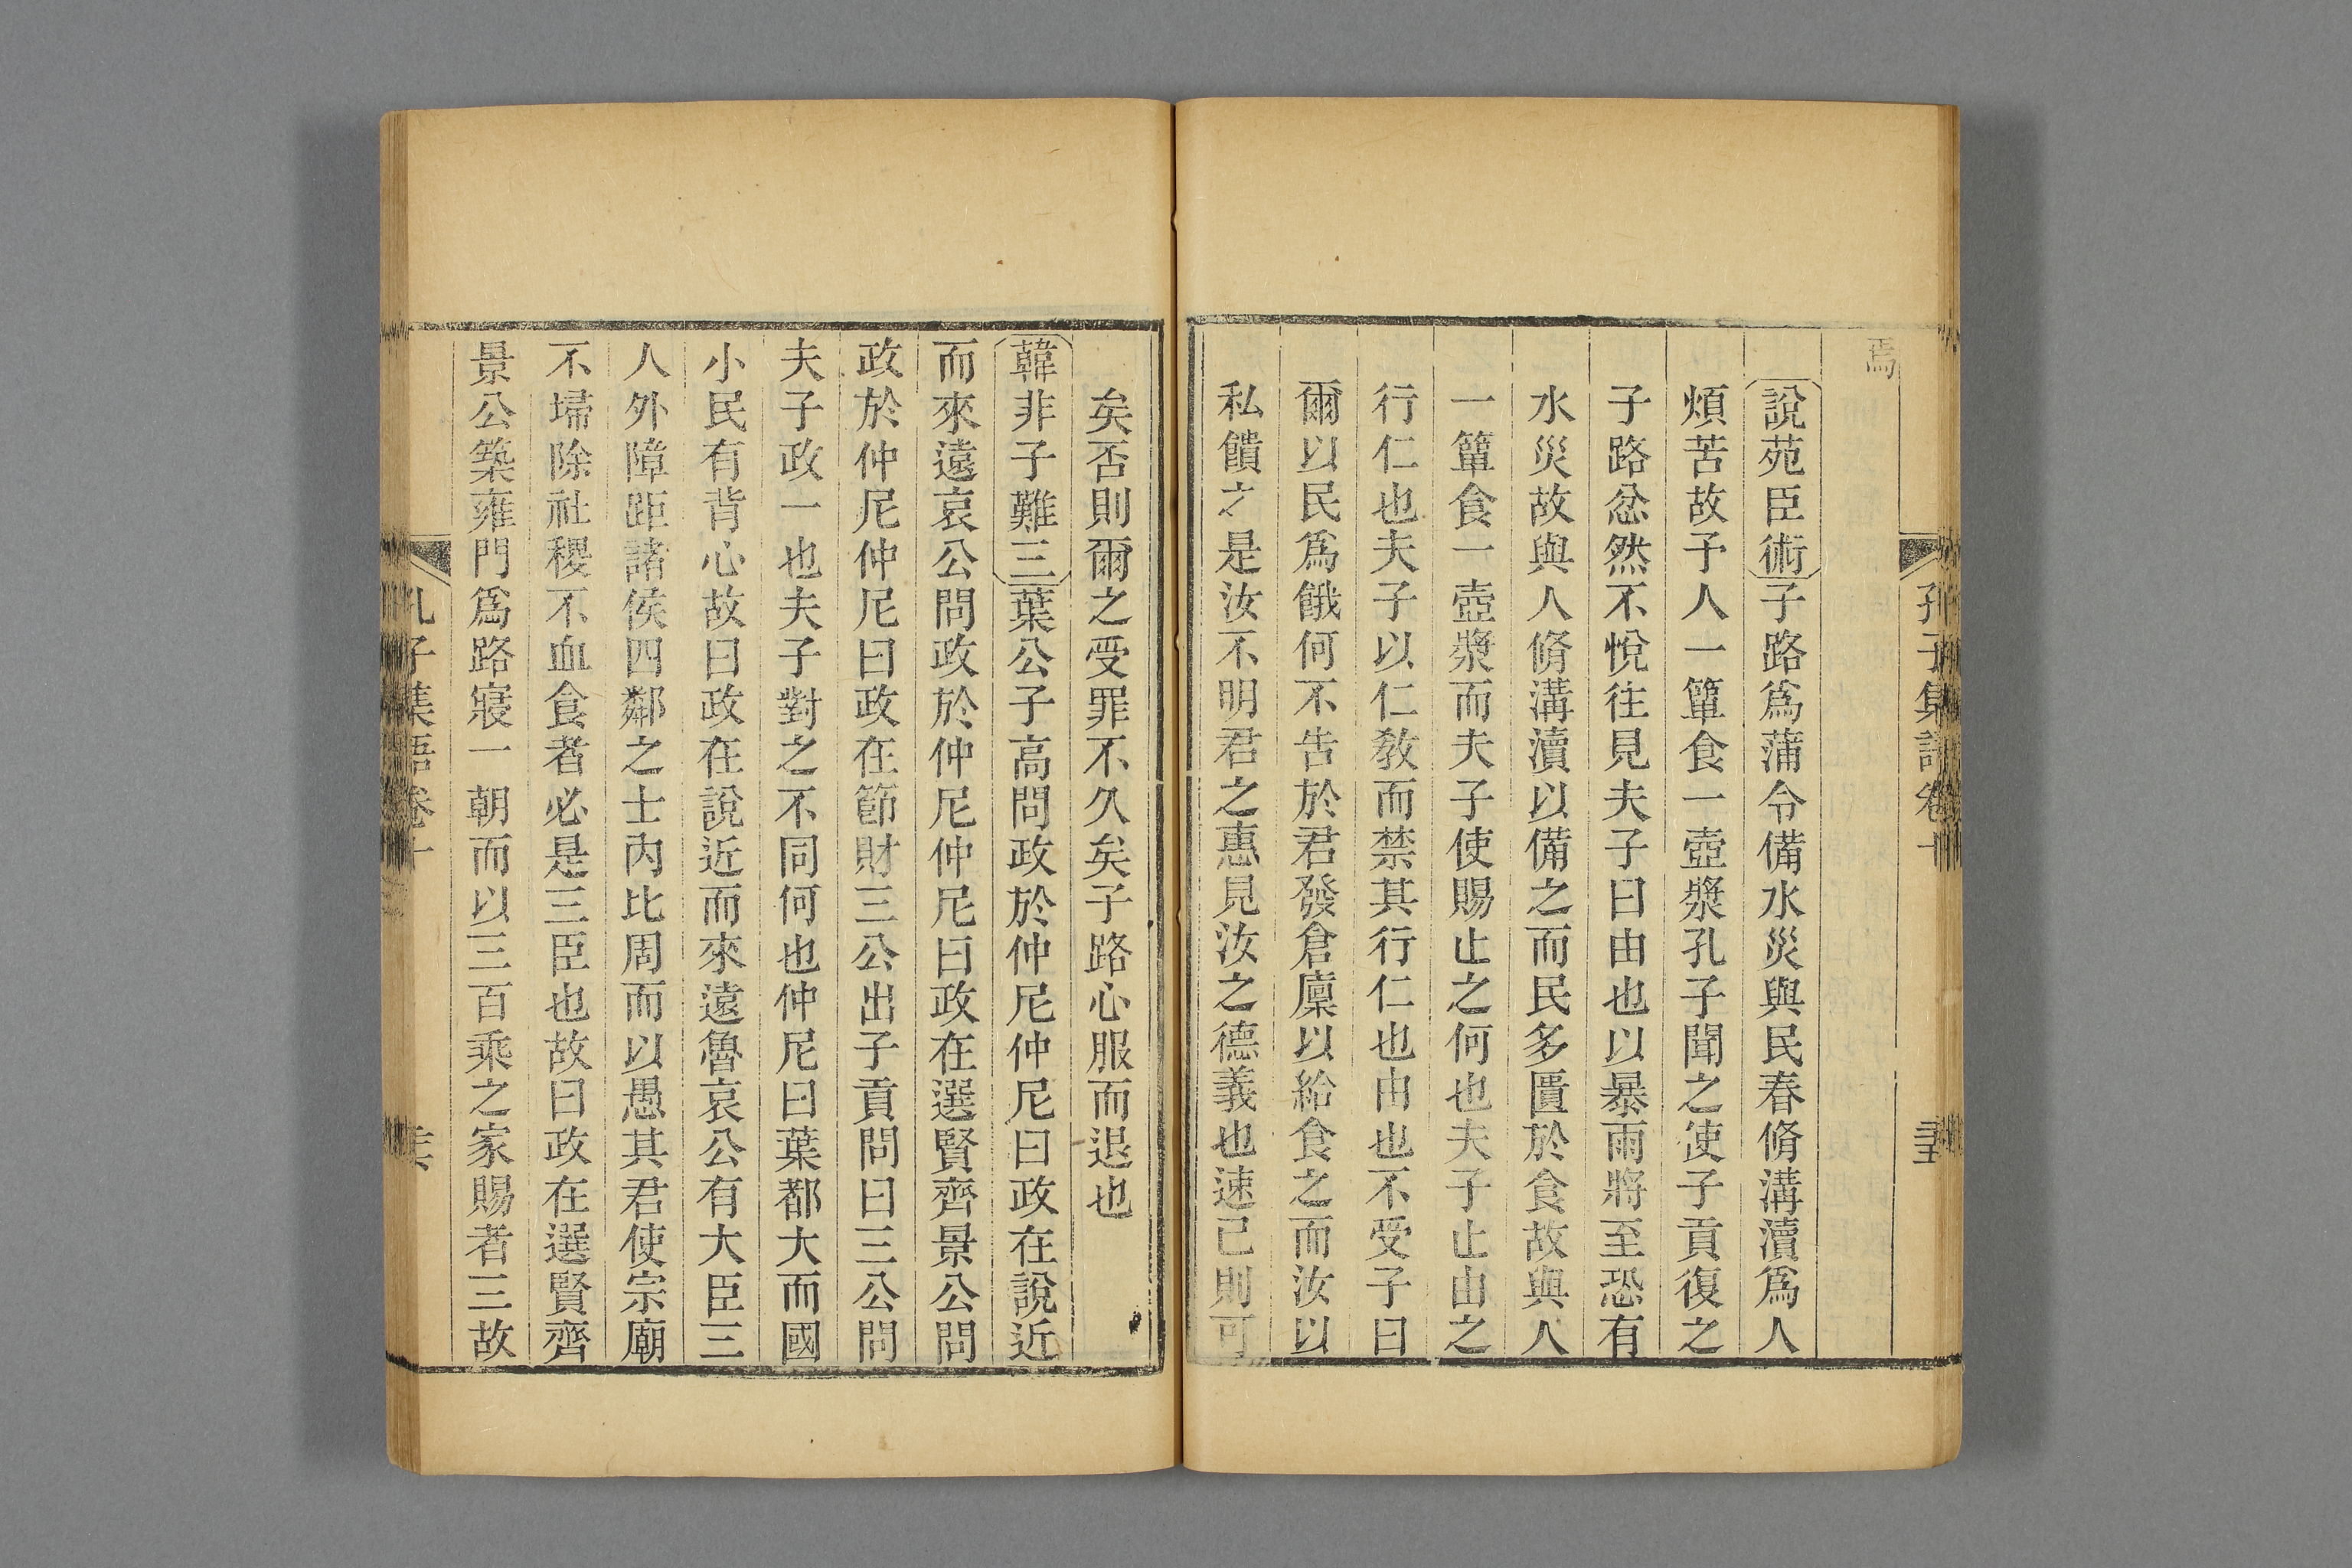 孔子集語卷十
焉
說苑臣術子路爲蒲令備水災與民春脩溝瀆爲人
煩苦故予人一簞食一壺漿孔子聞之使子貢復之
子路忿然不悅往見夫子曰由也以暴雨將至恐有
水災故與人脩溝瀆以備之而民多匱於食故與人
一簞食一壺漿而夫子使賜止之何也夫子止由之
行仁也夫子以仁敎而禁其行仁也由也不受子曰
爾以民爲餓何不告於君發倉廩以給食之而汝以
私饋之是汝不明君之惠見汝之德義也速已則可
矣否則爾之受罪不久矣子路心服而退也
韓非子難三葉公子高問政於仲尼仲尼曰政在說近
而來遠哀公問政於仲尼仲尼曰政在選賢齊景公問
政於仲尼仲尼曰政在節財三公出子貢問曰三公問
夫子政一也夫子對之不同何也仲尼曰葉都大而國
小民有背心故曰政在說近而來遠魯哀公有大臣三
人外障距諸侯四鄰之士內比周而以愚其君使宗廟
不埽除社稷不血食者必是三臣也故曰政在選賢齊
景公築雍門爲路寢一朝而以三百乘之家賜者三故
孔子集語卷十